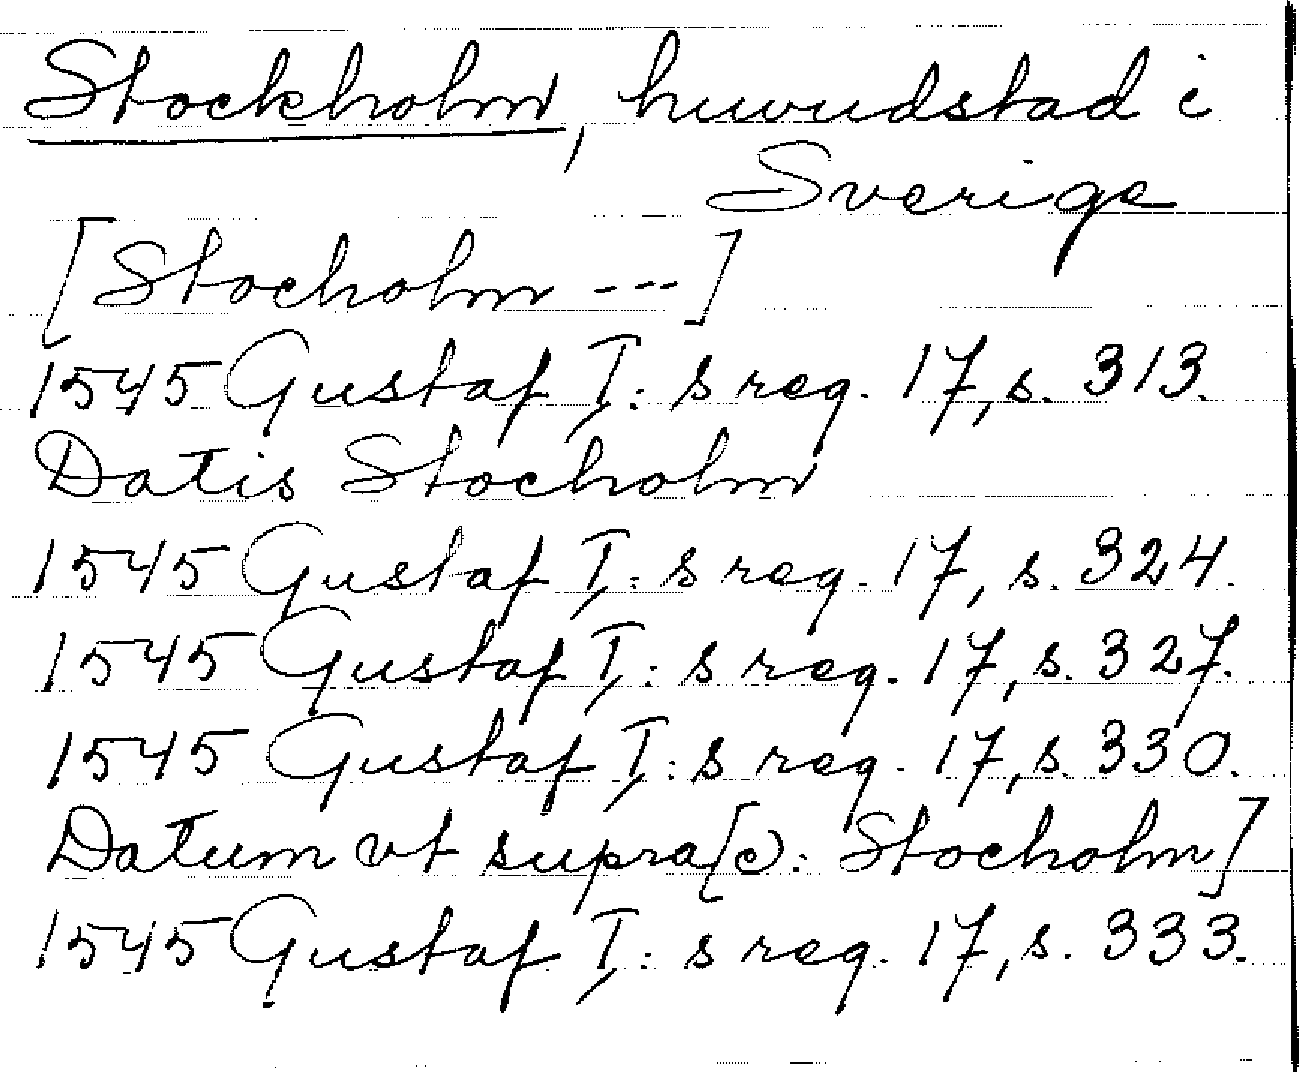 Stockholm, huvudstad i
Sverige
[Stocholm ---]
1545 Gustaf I: s reg. 17, s. 313.
Datis Stocholm
1545 Gustaf I: s reg. 17, s. 324.
1545 Gustaf I: s reg. 17, s. 327.
1545 Gustaf I: s reg. 17, s. 330.
Datum vt supra [ɔ: Stocholm]
1545 Gustaf I: s reg. 17, s. 333.